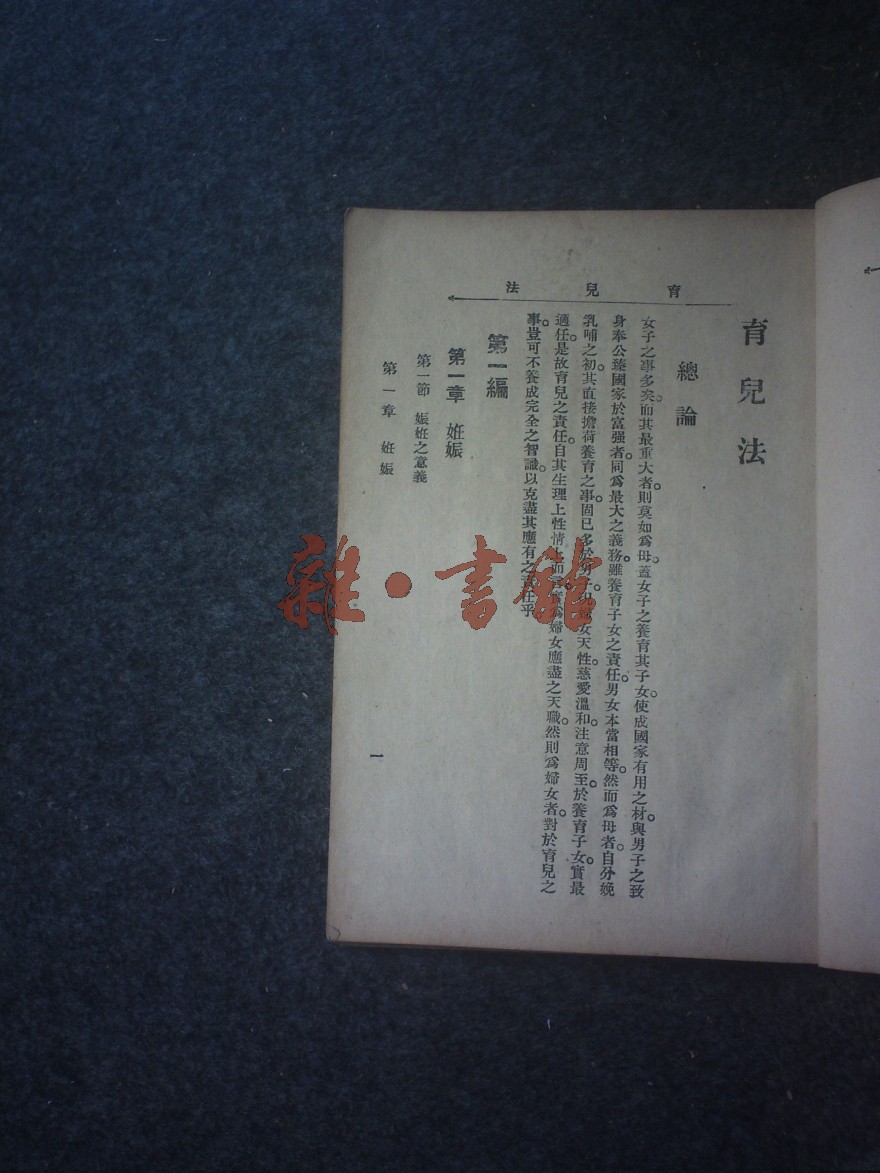 育兒法
育兒法
總論
女子之事多矣。而其最重大者。則莫如爲母。蓋女子之養育其子女。使成國家有用之材。與男子之致
身奉公。臻國家於富强者。同爲最大之義務。雖養育子女之責任。男女本當相等。然而爲母者。自分娩
乳哺之初。其直接擔荷養育之事。固已多於男子。婦女天性。慈愛溫和。注意周至。於養育子女。實最
適任。是故育兒之責任。自其生理上性情上而言。實爲婦女應盡之天職。然則爲婦女者。對於育兒之
事。豈可不養成完全之智識。以克盡其應有之責任乎
第一編
第一章 姙娠
第一節 娠姙之意義
第一章 姙娠
一
雜·書館